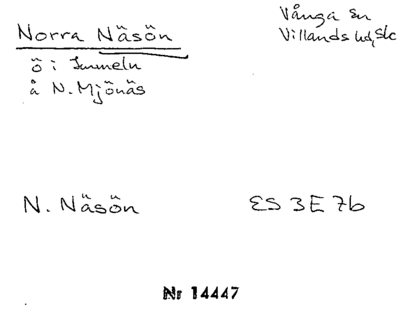 Norra Näsön
Vånga sn
Villands hd, Sk
ö i Immeln
å N. Mjönäs
N. Näsön
ES 3E 7b
Nr 14447